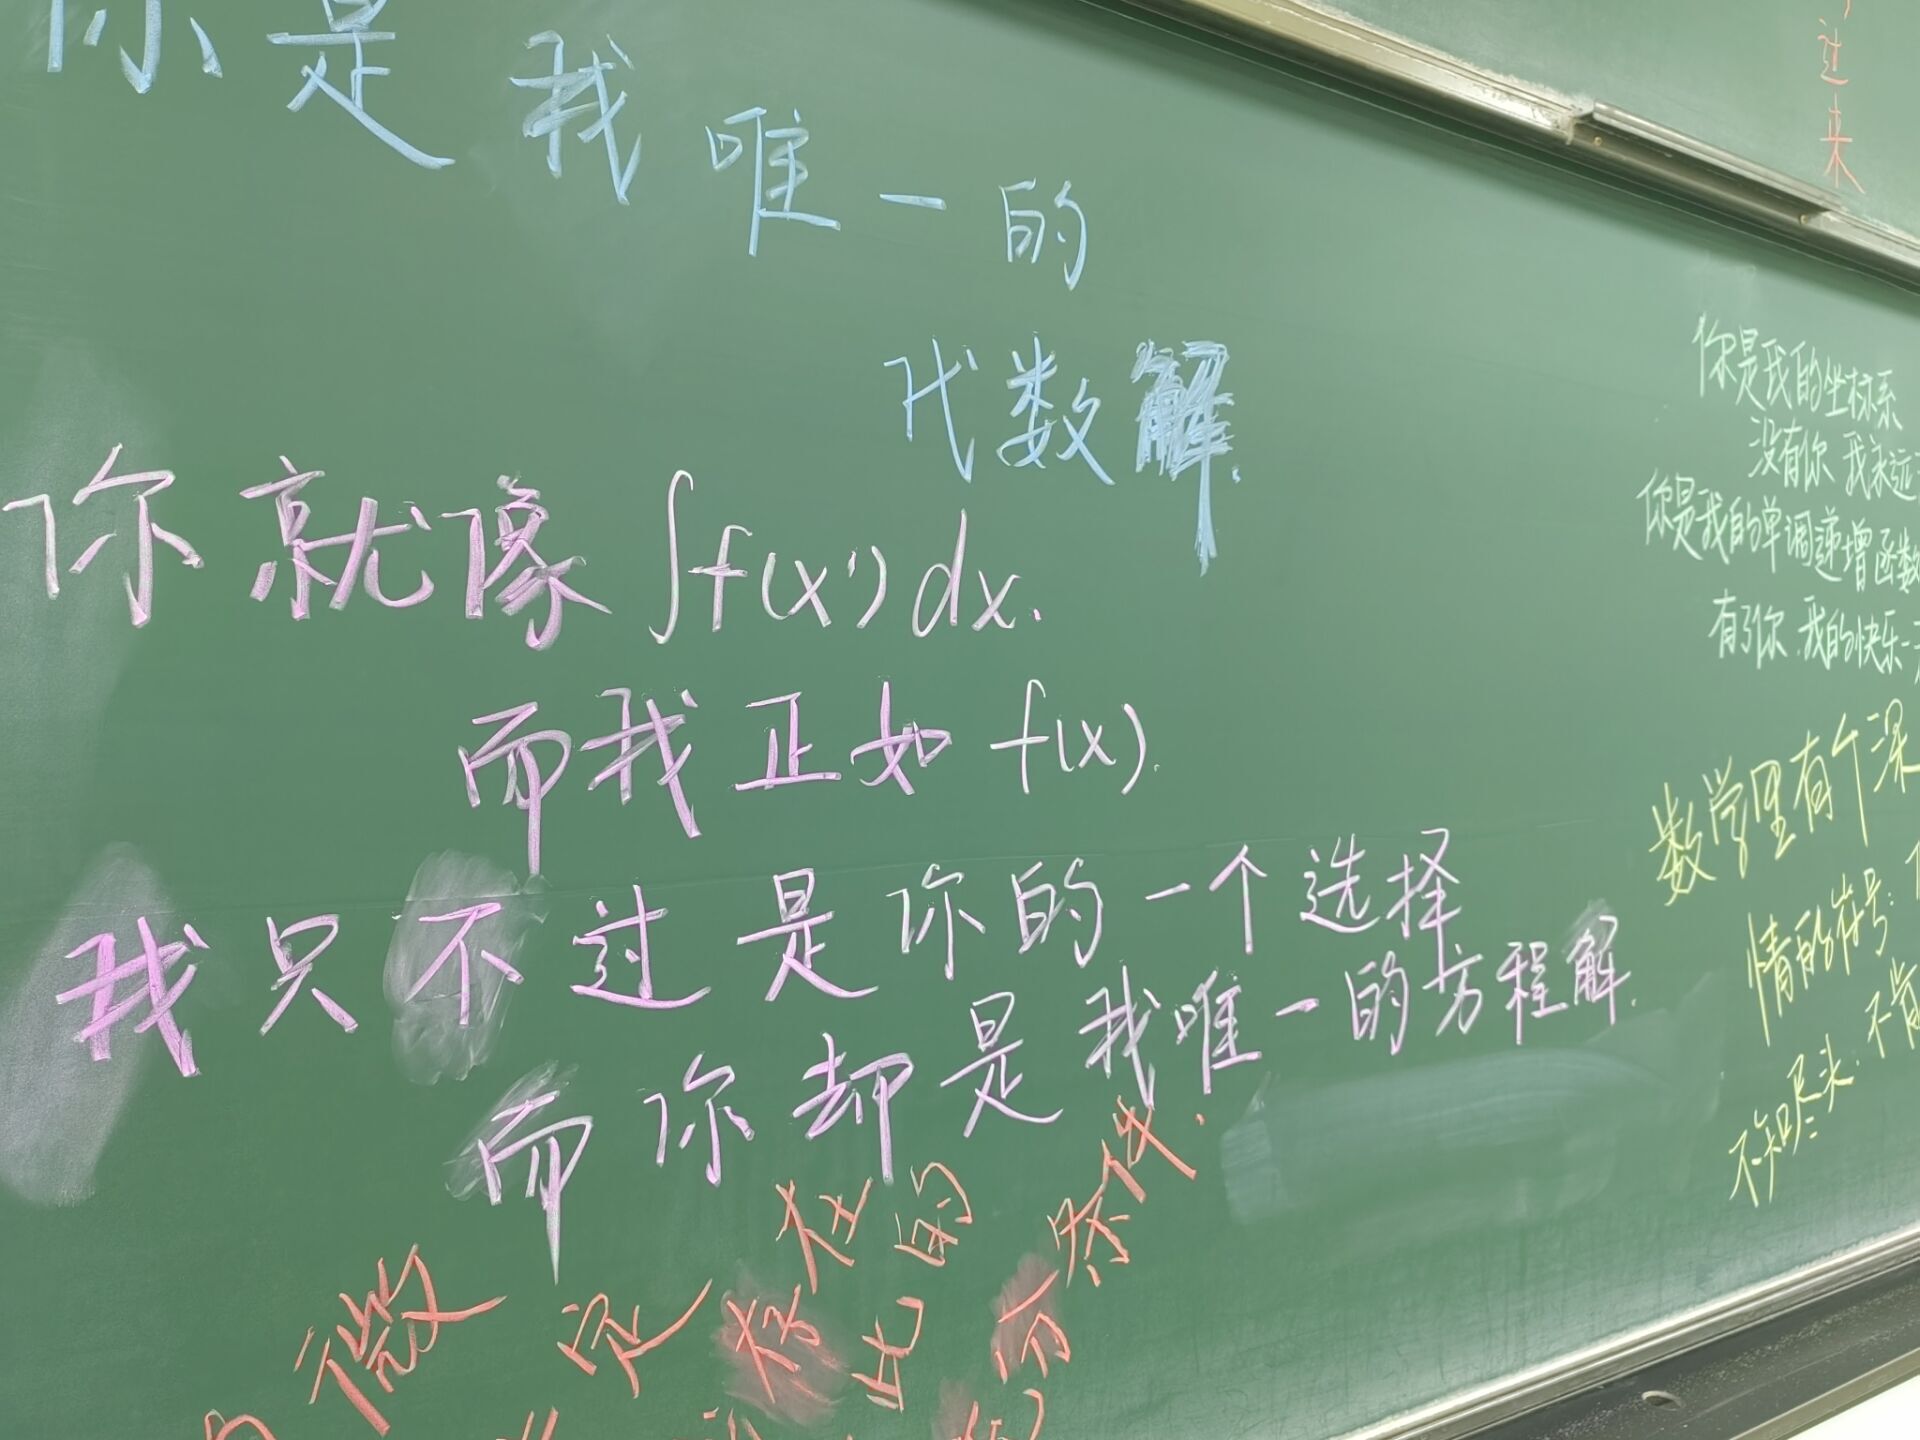 你是我唯一的
代数解.
你就像∫f(x')dx.
而我正如f(x).
我只不过是你的一个选择
而你却是我唯一的方程解.
微
定存在
比的
条件.
过来
你是我的坐标系
没有你 我永远
你是我的单调递增函数
有了你.我的快乐一
数学里有个深
情的符号:
不知尽头.不肯